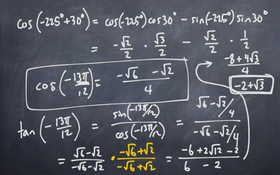 cos(-225°+30°) = cos(-225°)cos30° - sin(-225°)sin30°
= -√2/2 · √3/2 - √2/2 · 1/2
cos(-13π/12) = (-√6 - √2)/4
(-8+4√3)/4
-2+√3
tan(-13π/12) = sin(-13π/12)/cos(-13π/12) = ((√6-√2)/4)/((-√6-√2)/4)
= (√6-√2)/(-√6-√2) · (-√6+√2)/(-√6+√2) = (-6+2√12-2)/(6-2)